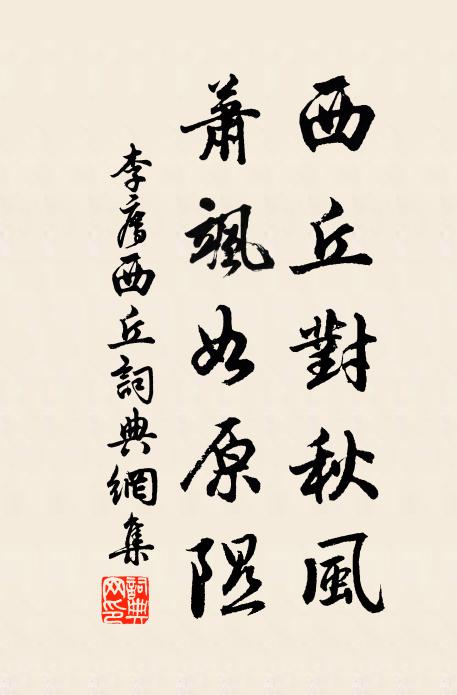 西丘對秋風
蕭颯如原隰
李廌西丘詞典網集
詞典網印